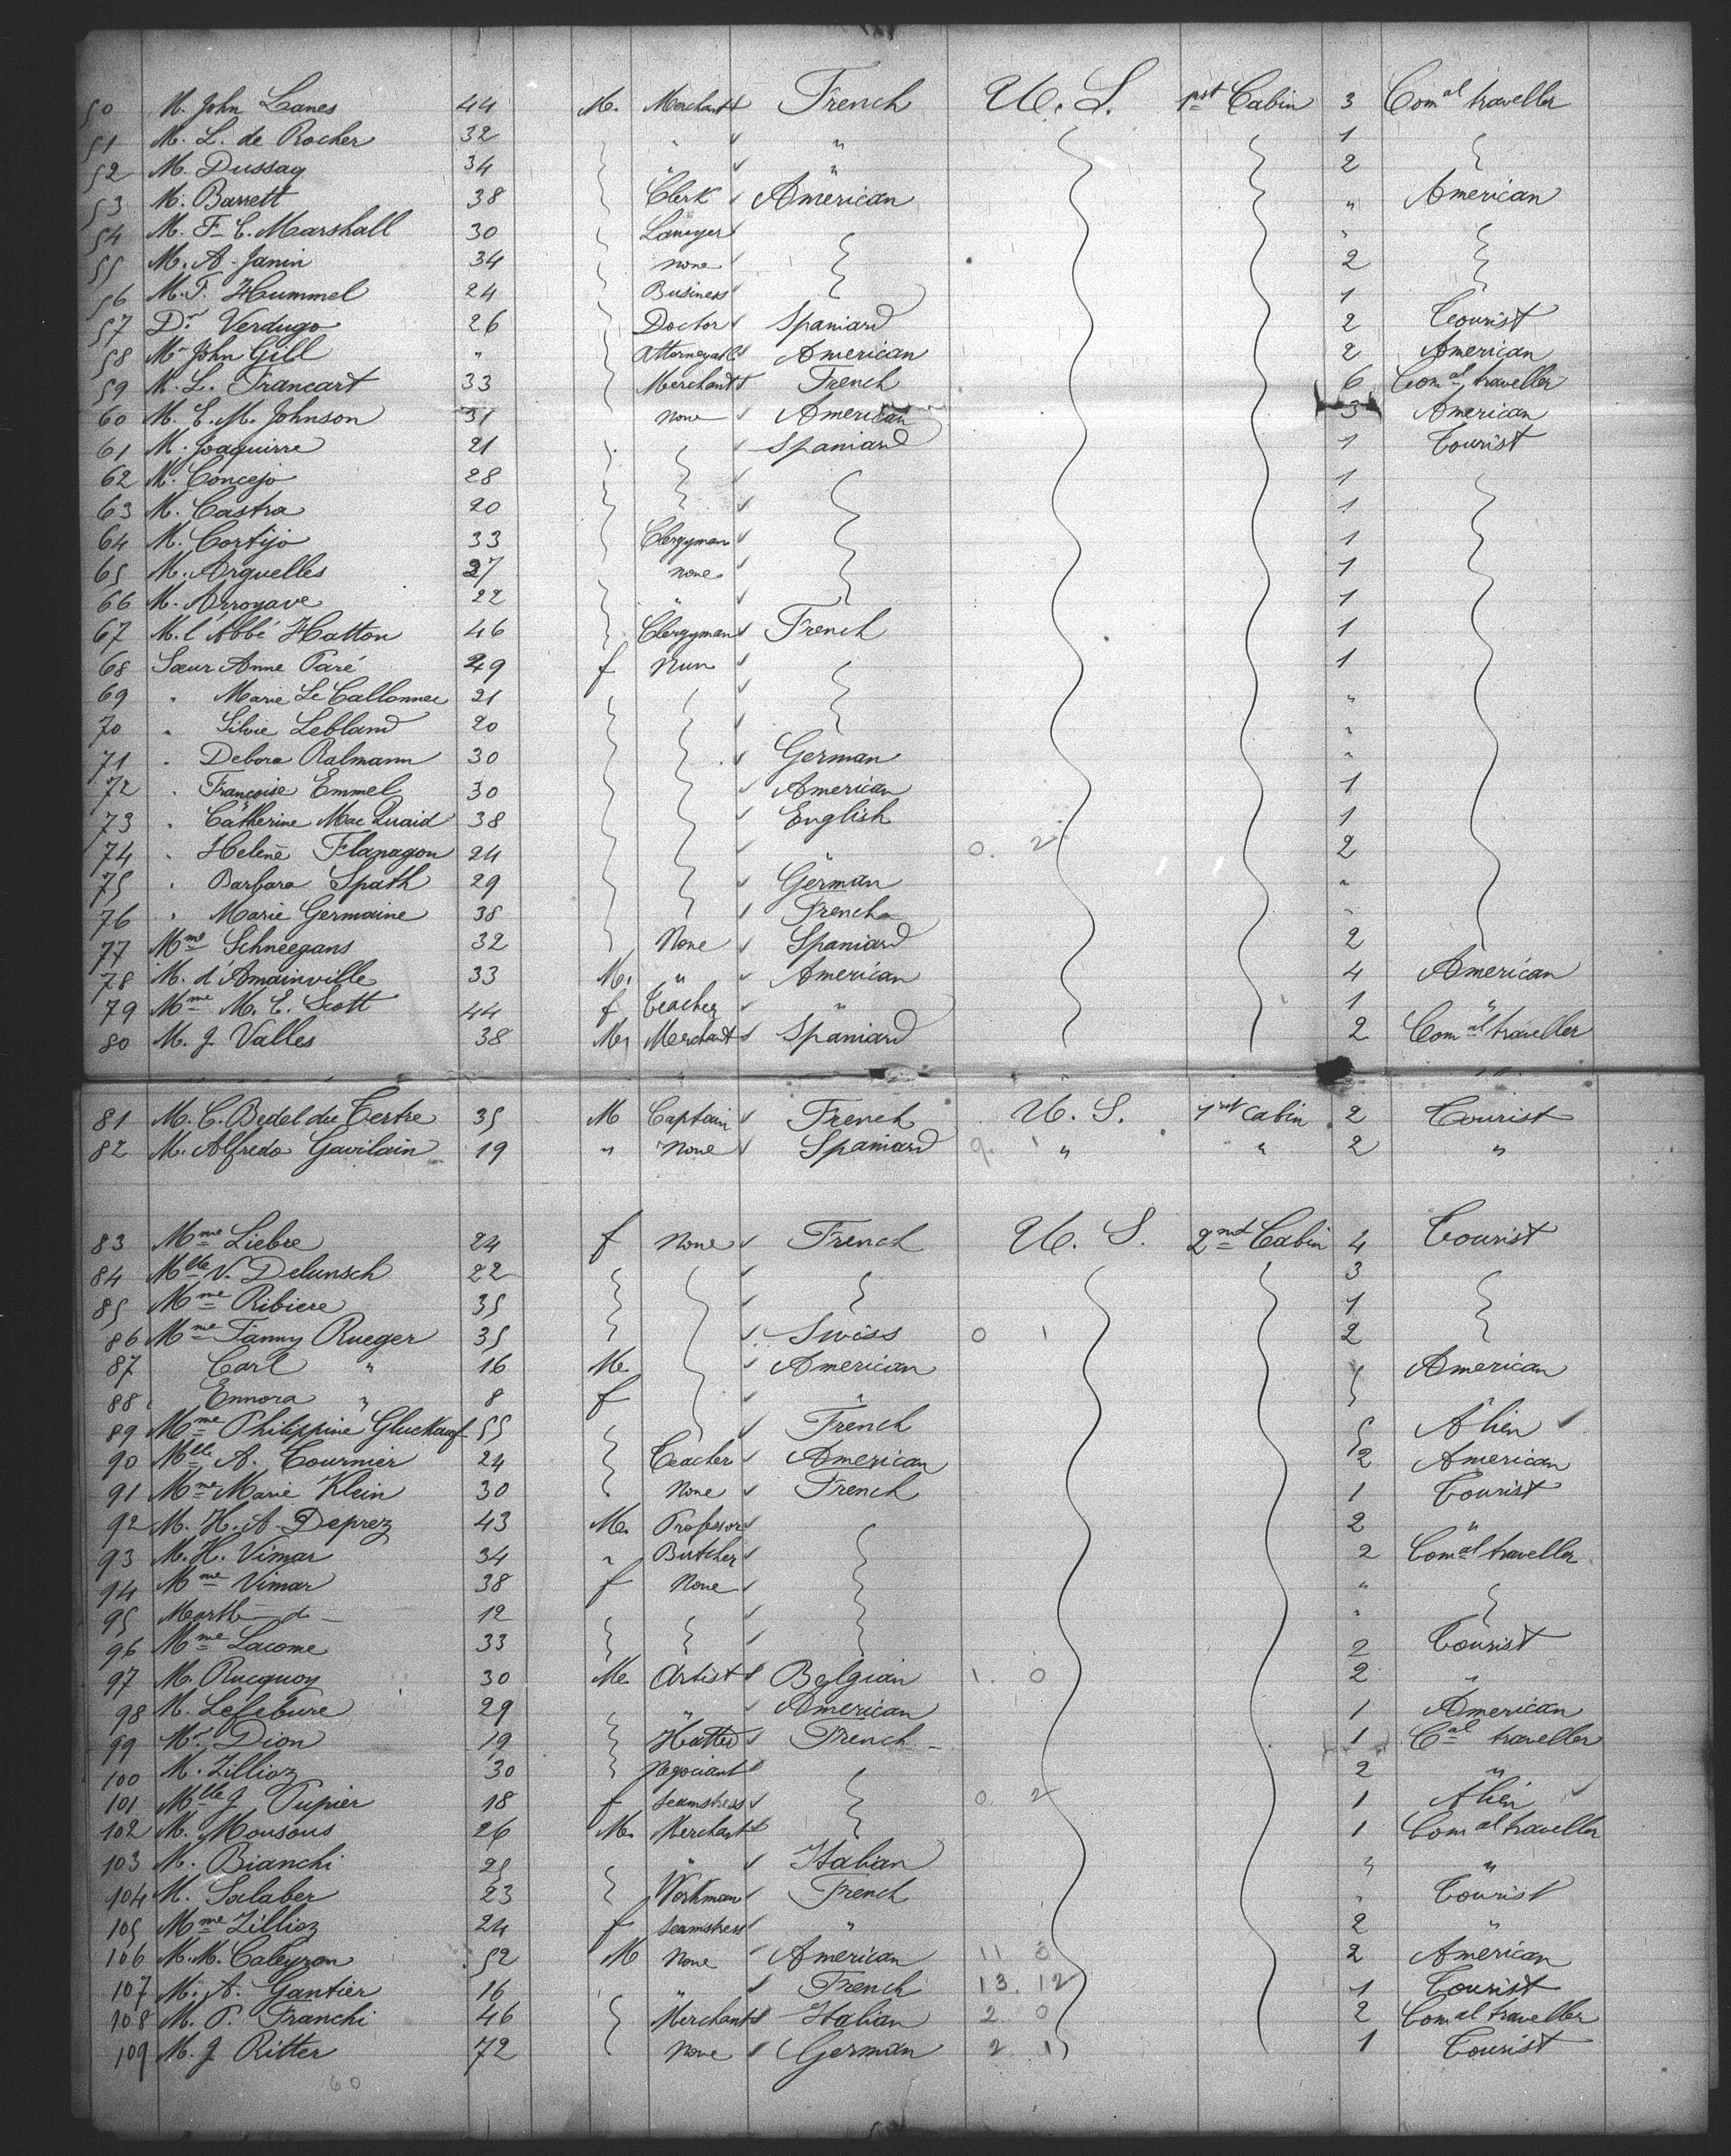 50 M. John Lanes 44 M. Merchant French U. S. 1st Cabin 3 Com.al traveller
51 M. L. de Rocher 32 " " 1
52 M. Dussay 34 " " 2
53 M. Barrett 38 Clerk American " American
54 M. F. C. Marshall 30 Lawyer "
55 M. A. Janin 34 none 2
56 M. F. Hummel 24 Business 1
57 Dr. Verdugo 26 Doctor Spaniard 2 Tourist
58 Mr John Gill " American 2 American
59 M. L. Francart 33 Merchant French 6 Com.al traveller
60 M. E. M. Johnson 31 none American 3 American
61 M. Joaquirre 21 Spaniard 1 Tourist
62 M. Concejo 28 1
63 M. Castra 20 1
64 M. Cortijo 33 Clergyman 1
65 M. Arguelles 27 none 1
66 M. Arroyave 22 " 1
67 M. l'Abbé Hatton 46 Clergyman French 1
68 Sœur Anne Paré 49 f Nun 1
69 " Marie Le Callonnec 21 "
70 " Silvie Lebland 20 "
71 " Debora Ralmann 30 German "
72 " Françoise Emmel 30 American 1
73 " Catherine Mac Quaid 38 English 1
74 " Helene Flanagon 24 " 0. 2 2
75 " Barbara Spath 29 German "
76 " Marie Germaine 38 French "
77 Mme Schneegans 32 None Spaniard 2
78 M. d'Amainville 33 M. " American 4 American
79 Mme M. E. Scott 44 f Teacher " 1 "
80 M. J. Valles 38 M. Merchant Spaniard 2 Com.al traveller
81 M. C. Bedel du Tertre 35 M Captain French U. S. 1st Cabin 2 Tourist
82 M. Alfredo Gavilain 19 " None Spaniard 9. 1 " " 2 "
83 Mme Liebre 24 f None French U. S. 2nd Cabin 4 Tourist
84 Mlle V. Delunsch 22 3
85 Mme Ribiere 35 1
86 Mme Fanny Rueger 35 Swiss 0 1 2
87 Carl " 16 M. American American
88 Ennora " 8 f "
89 Mme Philippine Gluckauf 55 French 5 Alien
90 Mlle A. Tournier 24 Teacher American 2 American
91 Mme Marie Klein 30 None French 1 Tourist
92 M. H. A. Deprez 43 M. Professor 2 "
93 M. H. Vimar 34 " Butcher 2 Com.al traveller
94 Mme Vimar 38 f None "
95 Marth — do — 12 "
96 Mme Lacome 33 2 Tourist
97 M. Rucquoy 30 M. Artist Belgian 1. 0 2 "
98 M. Lefebure 29 " American 1 American
99 Mr. Dion 19 Hatter French 1 C.al traveller
100 M. Zillioz 30 Negociant 2 "
101 Mlle J Pupier 18 f Seamstress 0. 2 1 Alien
102 M. Mousous 26 M. Merchant 1 Com al traveller
103 M. Bianchi 25 " Italian " "
104 M. Salaber 23 Workman French " Tourist
105 Mme Zillioz 24 f Seamstress " 2 "
106 M. M. Caleyron 52 M None American 11 3 2 American
107 M. A. Gantier 16 " French 13. 12 1 Tourist
108 M. P. Franchi 46 Merchant Italian 2 0 2 Com.al traveller
109 M. J. Ritter 72 None German 2 1 1 Tourist
60